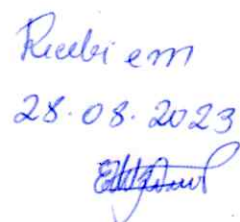 Recebi em
28.08.2023